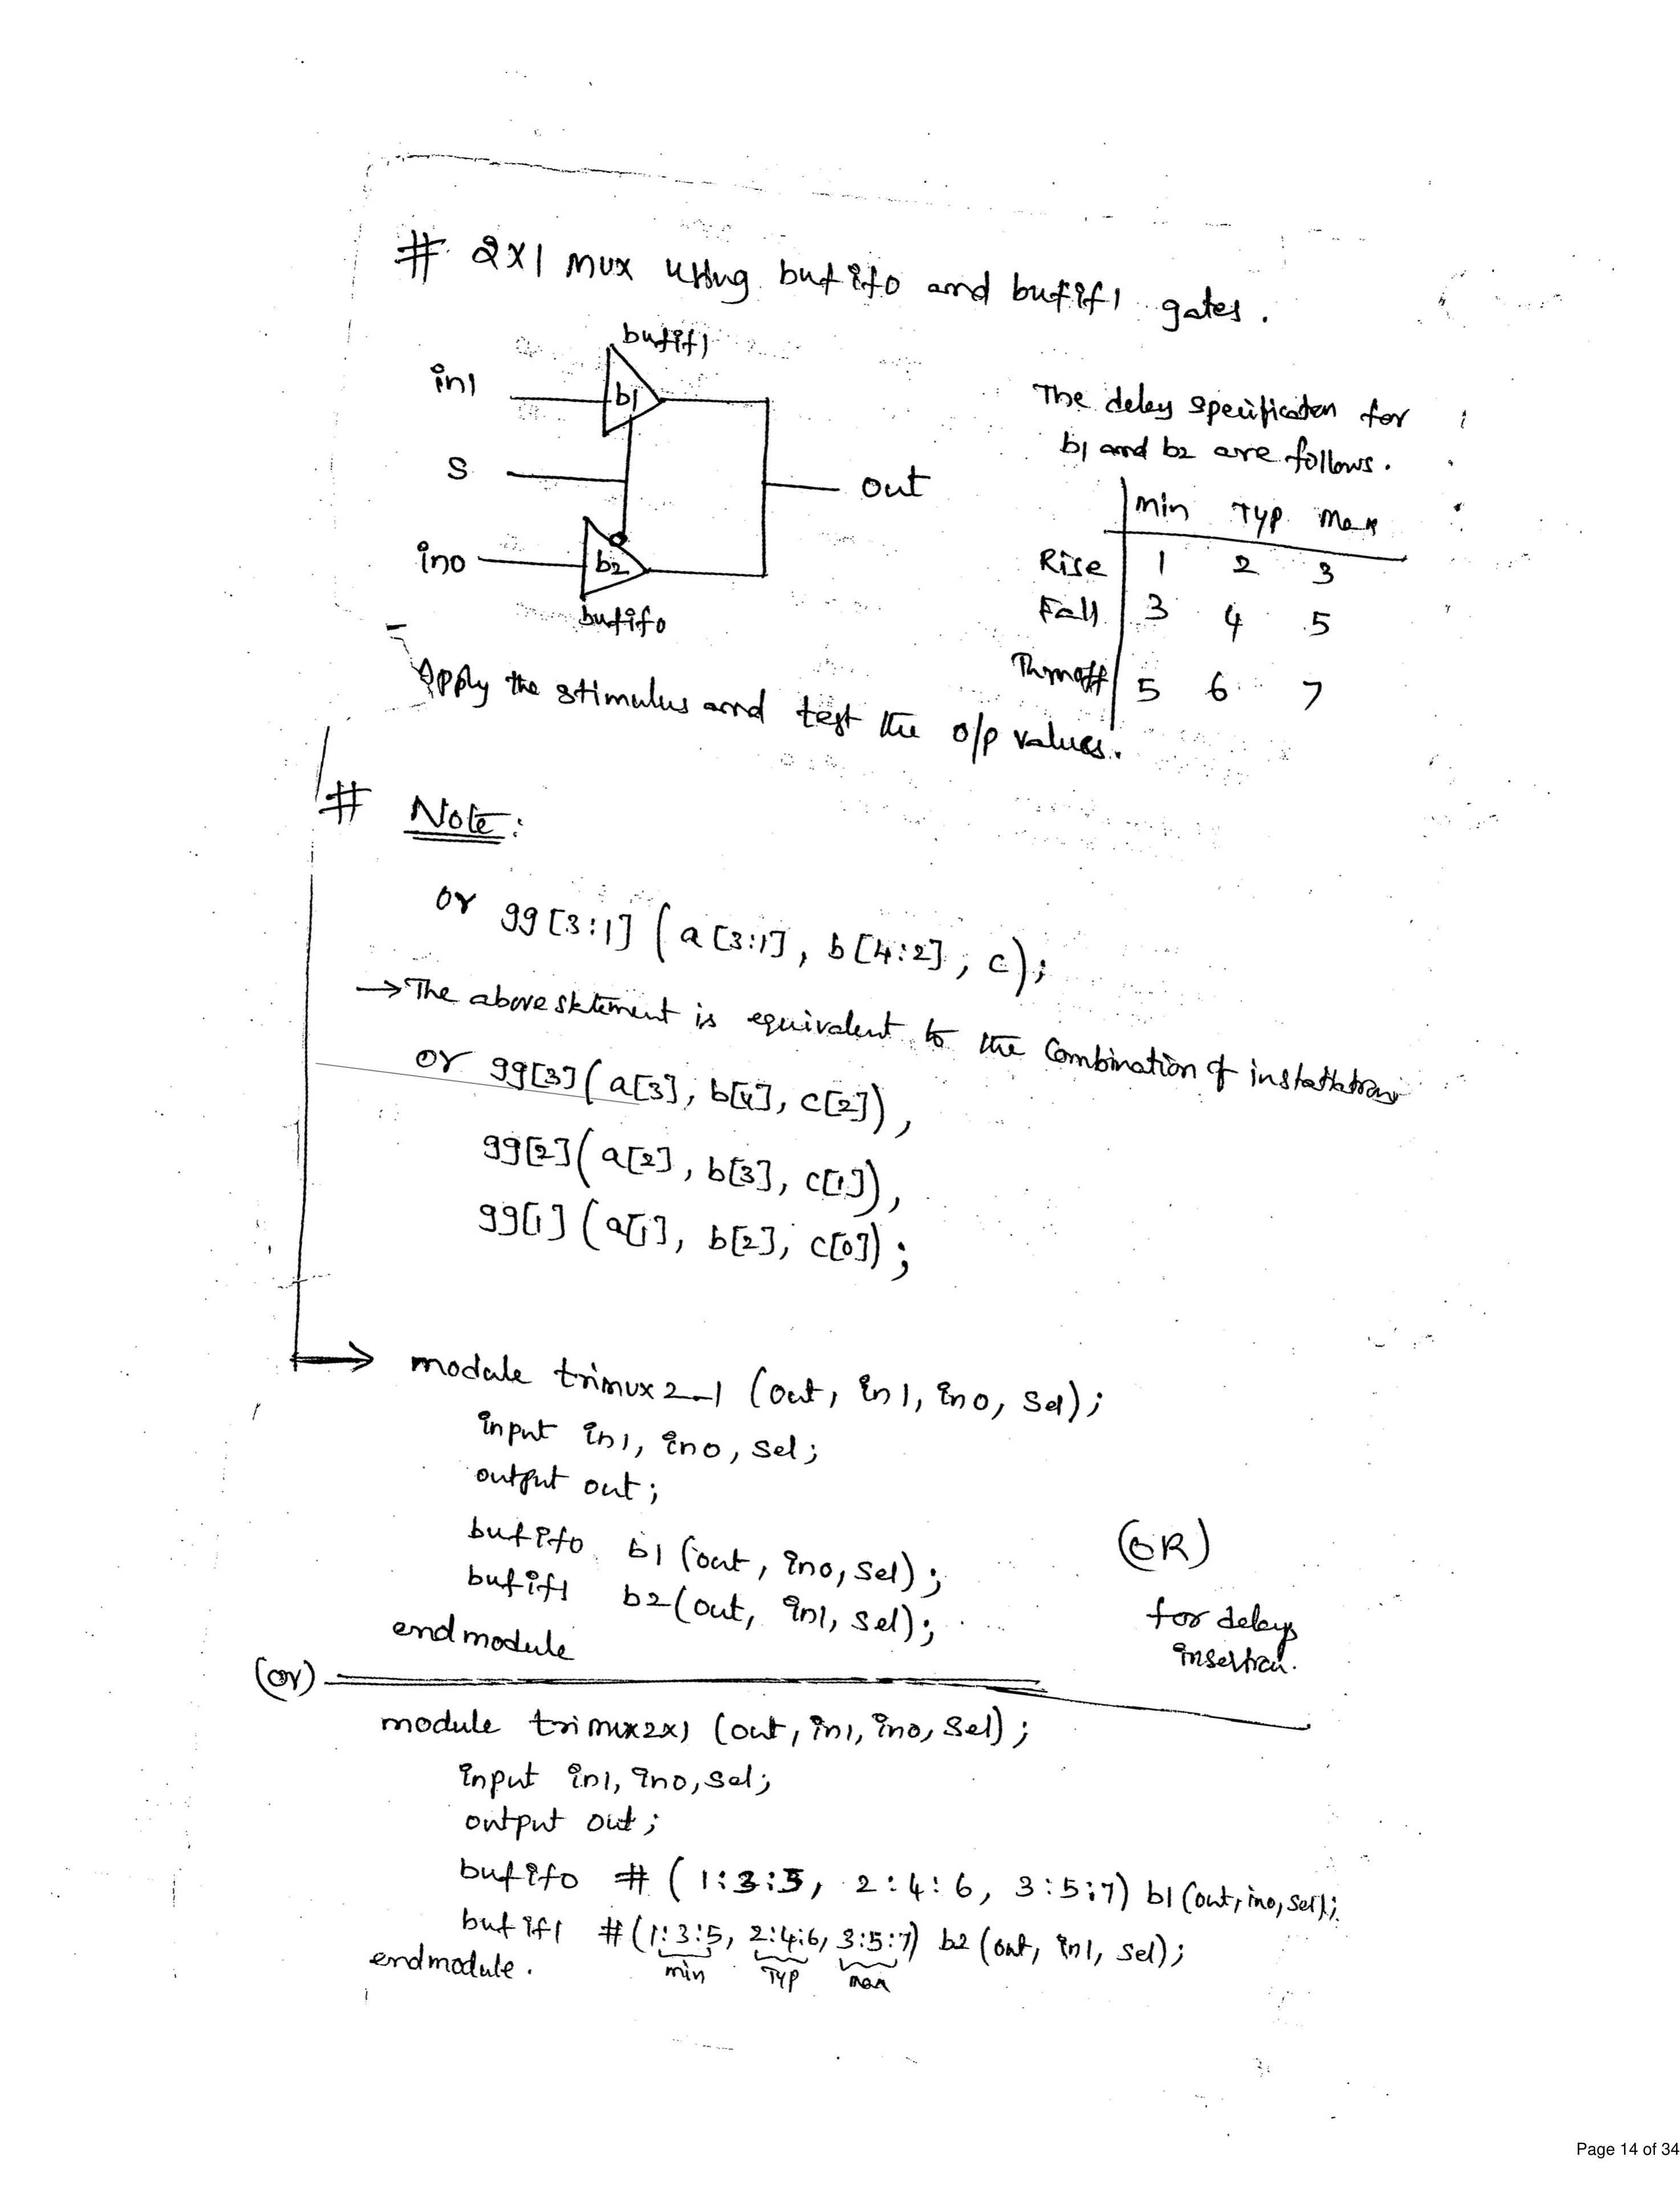 # 2X1 mux using bufif0 and bufif1 gates.
bufif1
in1
b1
S
out
in0
b2
bufif0
The delay specificaten for
b1 and b2 are follows.
Min Typ Max
Rise 1 2 3
Fall 3 4 5
Turnoff 5 6 7
Apply the stimulus and test the o/p values.
# Note:
or gg[3:1] (a[3:1], b[4:2], c);
→ The above statement is equivalent to the Combination of
or gg[3](a[3], b[4], c[2]),
gg[2](a[2], b[3], c[1]),
gg[1](a[1], b[2], c[0]);
→ module trimux2_1 (out, in1, in0, sel);
input in1, in0, sel;
output out;
bufif0 b1 (out, in0, sel);
bufif1 b2 (out, in1, sel);
endmodule
(OR)
for delays
insertion.
(or)
module trimux2x1 (out, in1, in0, sel);
input in1, in0, sel;
output out;
bufif0 # (1:3:5, 2:4:6, 3:5:7) b1 (out, in0, sel);
bufif1 #(1:3:5, 2:4:6, 3:5:7) b2 (out, in1, sel);
min Typ max
endmodule.
Page 14 of 34